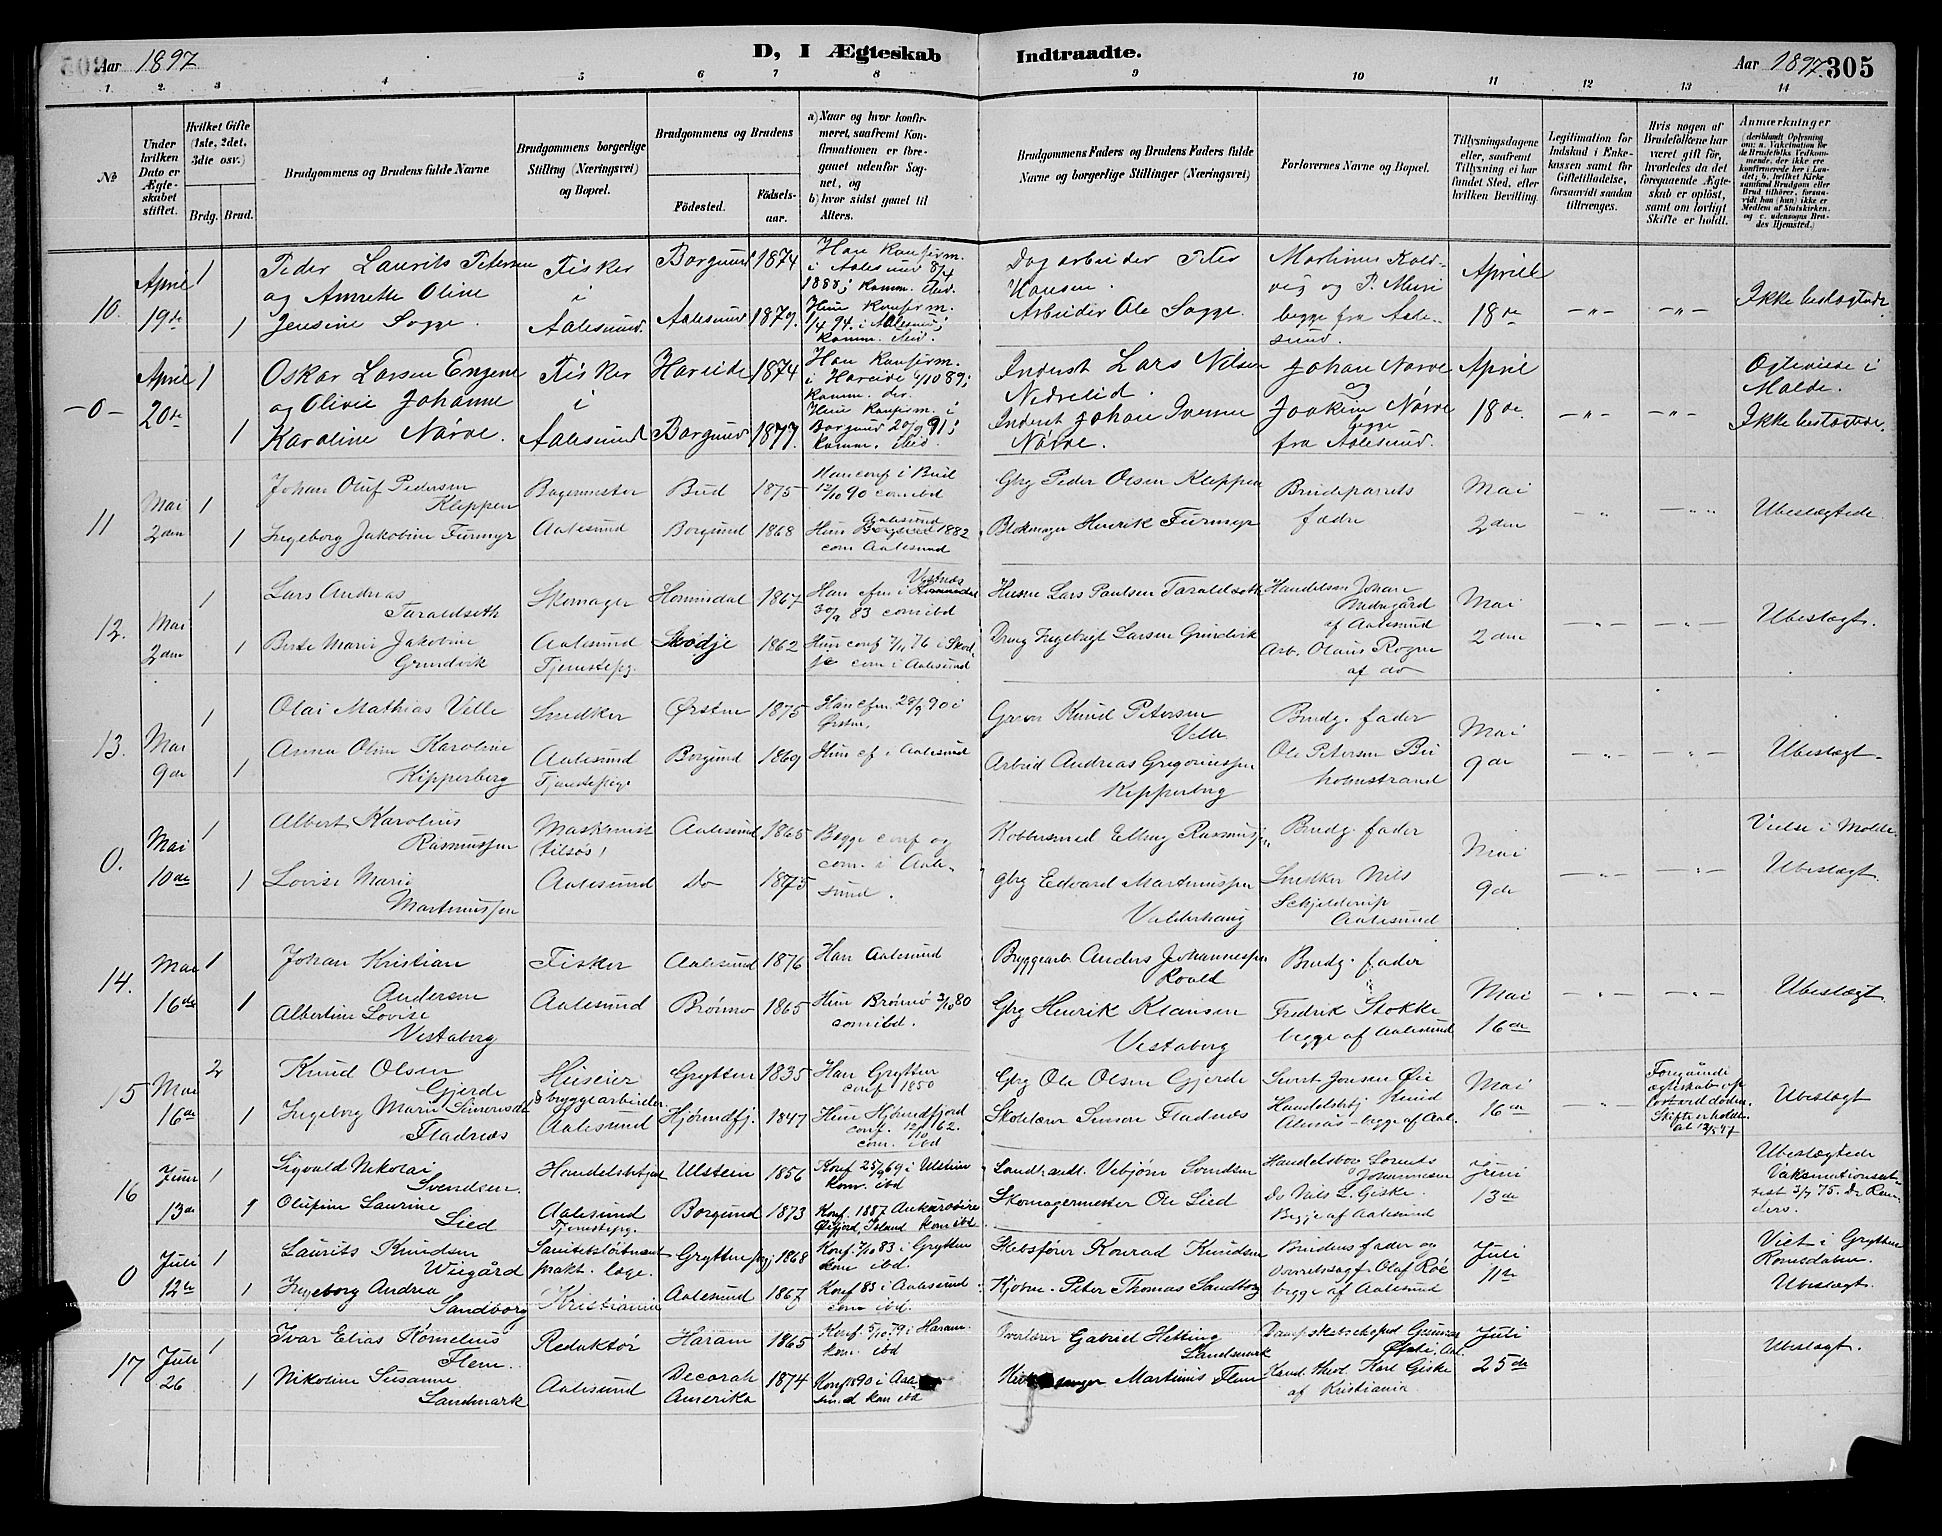 Aar 1897 D, I Ægteskab Indtraadte. Aar 1897. 305
1. 2. 3 4 5 6 7 8 9 10 11 12 13 14
No
Under hvilken Dato er Ægteskabet stiftet.
Hvilket Gifte (1ste, 2det, 3die osv.)
Brdg. Brud.
Brudgommens og Brudens fulde Navne
Brudgommens borgerlige Stilling (Næringsvei) og Bopæl.
Brudgommens og Brudens
Födested. Födselsaar.
a) Naar og hvor konfirmeret, saafremt Konfirmationen er foregaaet udenfor Sognet, og
b) hvor sidst gaaet til Alters.
Brudgommens Faders og Brudens Faders fulde Navne og borgerlige Stillinger (Næringsvei)
Forlovernes Navne og Bopæl.
Tillysningsdagene eller, saafremt Tillysning ei har fundet Sted, efter hvilken Bevilling.
Legitimation for Indskud i Enkekassen samt for Giftetilladelse, forsaavidt saadan tiltrænges.
Hvis nogen af Brudefolkene har været gift för, hvorledes da det foregaaende Ægteskab er oplöst, samt om lovligt Skifte er holdt.
Anmærkninger
(deriblandt Oplysning om: a. Vakcination for de Brudefolks Vedkommende, der ikke ere konfirmerede her i Landet; b. hvilket Kirkesamfund Brudgom eller Brud tilhörer, forsaavidt han (hun) ikke er Medlem af Statskirken, og c. udensogns Brudes Hjemsted.)
10. April 19de 1 1
Peder Laurits Petersen og Annette Oline Jensine Sogge.
Fisker i Aalesund.
Borgund 1874
Aalesund 1879.
Han konfirm. i Aalesund 8/4 1888; komm. ibid.
Hun konfirm. 1/4 94. i Aalesund; komm. ibid.
Dagarbeider Peter Hansen.
Arbeider Ole Sogge.
Martinus Kaldvig og P. Muri begge fra Aalesund.
April 18de
Ikke beslægtede.
-0- April 20de 1 1
Oskar Larsen Engene og Olivie Johanne Karoline Nørve.
Fisker i Aalesund
Hareide 1874
Borgund 1877.
Han konfirm. i Hareide 6/10 89; komm. der.
Hun konfirm. i Borgund 20/9 91; komm. ibid.
Inderst Lars Nilsen Nedrelid.
Inderst Johan Iversen Nørve.
Johan Nørve og Joakim Nørve begge fra Aalesund.
April 18de
Ogteviede i Molde.
Ikke beslægtede.
11 Mai 2den 1 1
Johan Oluf Pedersen Kleppen
Ingeborg Jakobine Furmyr
Bagermester
Aalesund
Bud 1875
Borgund 1868
Han conf i Bud 12/10 90 com ibd
Hun Aalesund 1882 com Aalesund
Gbrg Peder Olsen Kleppen
Blokmager Henrik Furmyr
Brudeparrets fædre
Mai 2den
Ubeslægtede
12. Mai 2den 1 1
Lars Andreas Taraldseth
Berte Marie Jakobine Grundvik
Skomager
Aalesund
Tjenestepg.
Hornindal 1867
Skodje 1862
Han cfm i Vestnæs 30/9 83 com ibd
Hun conf 7/11 76 i Skodje com i Aalesund
Husm Lars Paulsen Taraldseth
Ingebrigt Larsen Grundvik
Handelsm Johan af Aalesund
Arb. Olaus Rogne af do
Mai 2den
Ubeslægt.
13. Mai 9de 1 1
Olai Mathias Velle
Anna Oline Karoline Kipperberg
Snedker
Aalesund
Tjenestepige
Ørsten 1875
Borgund 1869
Han cfm. 28/9 90 i Ørsten.
Hun cf i Aalesund
Knud Petersen Velle
Arbeid Andreas Gregoriussen Kipperberg
Brudg. fader
Ole Petersen
Mai 9de
Ubeslægt.
0. Mai 10de 1 1
Albert Karolius Rasmussen
Lovise Marie Martinussen
Maskinist (tilsøs)
Aalesund
Aalesund 1865
Do 1875
Begge conf og com. i Aalesund.
Kobbersmed Elling Rasmussen
gbrg Edvard Martinussen Valderhaug
Brudg. fader
Snedker Nils Schjelderup Aalesund
Mai 9de
Vielse i Molde.
Ubeslægt.
14. Mai 16de 1 1
Johan Kristian Andersen
Albertine Lovise Vestaberg
Fisker
Aalesund
Aalesund 1876
Brønnø 1865
Han Aalesund
Hun Brønnø 3/10 80 com ibd.
Bryggearb Anders Johannessen Roald
Gbrg Henrik Klausen Vestaberg
Brudg. fader
Fredrik Stokke begge af Aalesund
Mai 16de
Ubeslægt
15 Mai 16de 2 1
Knud Olsen Gjerde
Ingeborg Marie Simonsdt Fladnæs
Huseier & bryggearbeider
Aalesund
Grytten 1835
Hjørundfj. 1847
Han Grytten conf 1850
Hun Hjørundfjord conf. 12/10 62. com. ibd
Gbrg Ole Olsen Gjerde
Skolelærer Simon Fladnæs
Sivert Jonsen Øie
Handelsbetj Knud Alnæs - begge af Aal.
Mai 16de
Foregaaende ægteskab opl. ved døden. Skifte er holdt
Ubeslægt
16 Juni 13de 1 1
Sigvald Nikolai Svendsen.
Olufine Laurine Lied
Handelsbetjent
Aalesund
Tjenestepg.
Ulstein 1856
Borgund 1873
Konf 25/9 69 i Ulstein kom. ibd
Konf. 1887 Ankurøire Øifjord, Island kom ibd
Landhandl. Vebjørn Svendsen
Skomagermester Ole Lied
Handelsbor Lorents Johannesen
Do Nils L. Giske.
Begge af Aalesund
Juni 13de
Ubeslægtede
Vaksinationsattest 3/7 75. Dr
0 Juli 12te 1 1
Laurits Knudsen Wiigård
Ingeborg Andrea Sandborg
Sanitetsløitnant prakt. læge.
Kristiania
Grytten 1868
Aalesund 1867
Konf. 7/10 83 i Grytten kom ibd.
Konf 83 i Aalesund kom ibd.
Skibsfører Konrad Knudsen
Kjøbm. Peter Thomas Sandborg
Brudens fader og Overretssagf. Olaf Røe begge af Aalesund
Juli 11te
Viet i Grytten Romsdalen.
Ubeslægt.
17 Juli 26 1 1
Ivar Elias Kornelius Flem.
Nikoline Susanne Landmark
Redaktør
Aalesund
Haram 1865
Decorah Amerika 1874
Konf. 5/10 79 i Haram. kom. ibd
Konf 1890 i Aalesund kom ibd
Overlærer Gabriel Hetting Landmark
Martinus Flem
Dampskibsexped Gunnar
Kand. theol. Karl Giske af Kristiania
Juli 25de
Ubeslægt.